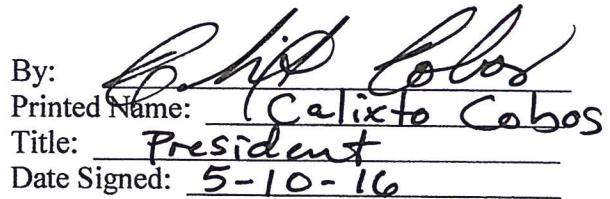 By: Calixto Cobos
Printed Name: Calixto Cobos
Title: President
Date Signed: 5-10-16